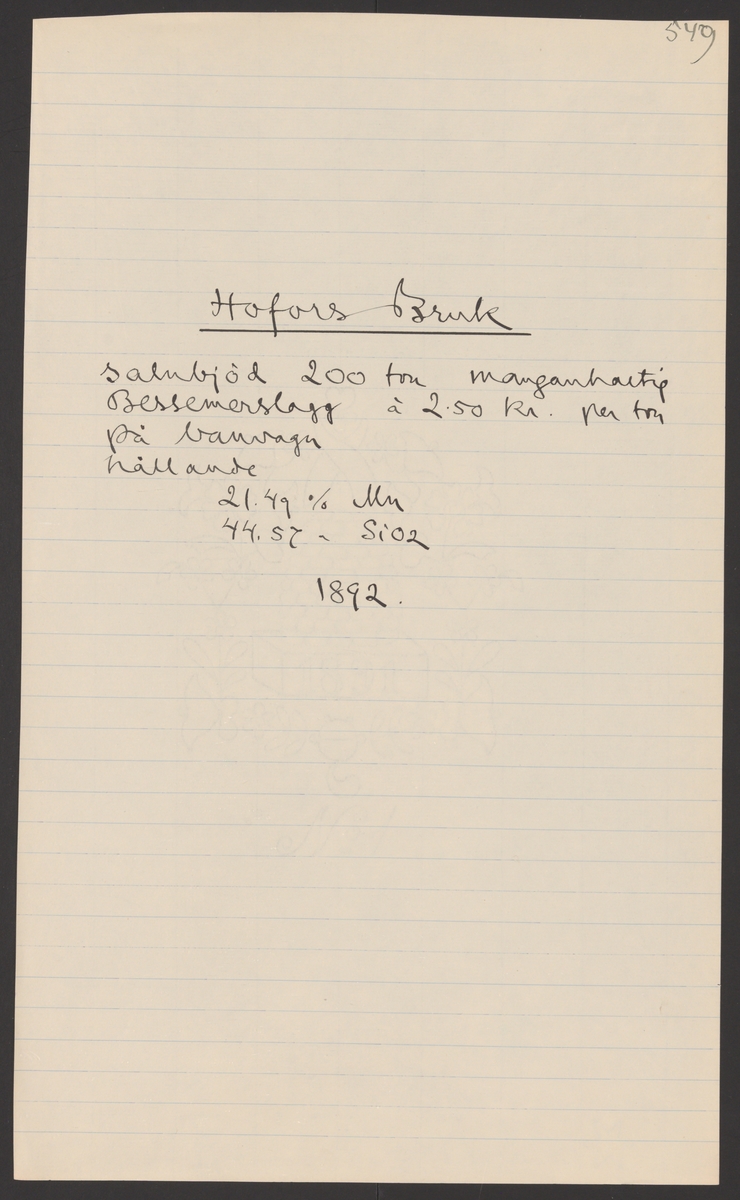 549
Hofors Bruk
salubjöd 200 ton manganhaltig
Bessemerslagg à 2.50 Kr. per ton
på banvagn
hållande
21.49 % Mn
44.57 " SiO2
1892.